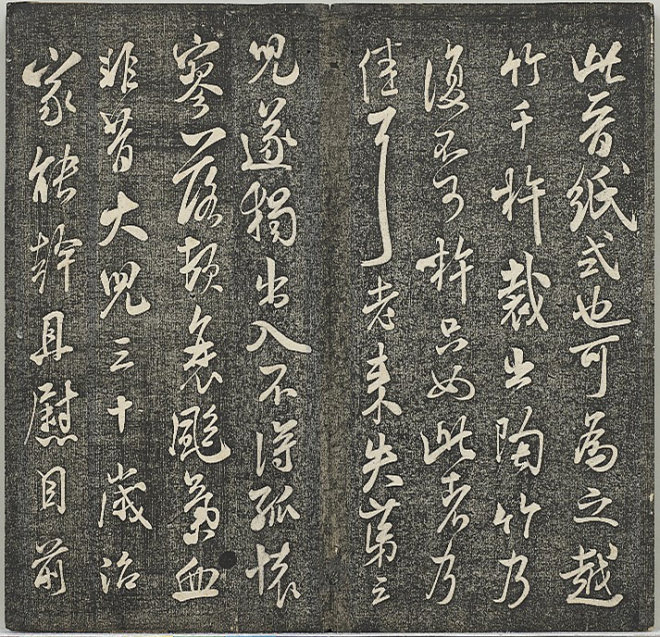 此晉紙式也可為之越
竹千杵裁出陶竹乃
復不可杵只如此者乃
佳耳老来失第三
兒遂獨出入不得孤懷
寥落頓衰颯氣血
非昔大兒三十歲治
家能幹且慰目前